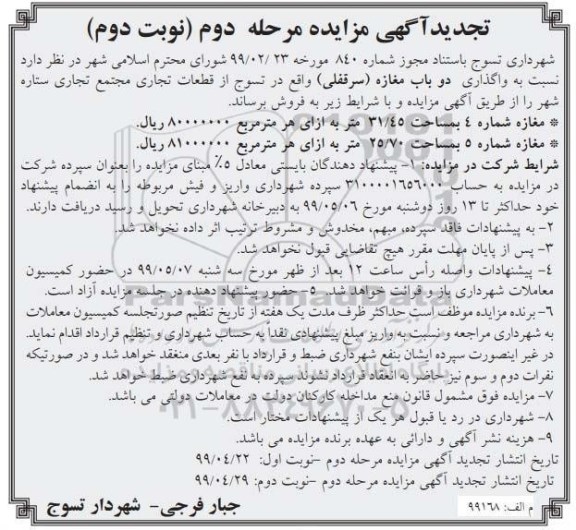 تجدیدآگهی مزایده مرحله دوم (نوبت دوم)
شهرداری تسوج باستناد مجوز شماره ۸۴۰ مورخه ۹۹/۰۲/۲۳ شورای محترم اسلامی شهر در نظر دارد
نسبت به واگذاری دو باب مغازه (سرقفلی) واقع در تسوج از قطعات تجاری مجتمع تجاری ستاره
شهر را از طریق آگهی مزایده و با شرایط زیر به فروش برساند.
* مغازه شماره ۴ بمساحت ۳۱/۴۵ متر به ازای هر مترمربع ۸۰۰۰۰۰۰۰ ریال.
* مغازه شماره ۵ بمساحت ۲۵/۷۰ متر به ازای هر مترمربع ۸۱۰۰۰۰۰۰ ریال.
شرایط شرکت در مزایده: ۱- پیشنهاد دهندگان بایستی معادل ۵٪ مبنای مزایده را بعنوان سپرده شرکت
در مزایده به حساب ۳۱۰۰۰۰۱۶۵۶۰۰۰ سپرده شهرداری واریز و فیش مربوطه را به انضمام پیشنهاد
خود حداکثر تا ۱۳ روز دوشنبه مورخ ۹۹/۰۵/۰۶ به دبیرخانه شهرداری تحویل و رسید دریافت دارند.
۲- به پیشنهادات فاقد سپرده، مبهم، مخدوش و مشروط ترتیب اثر داده نخواهد شد.
۳- پس از پایان مهلت مقرر هیچ تقاضایی قبول نخواهد شد.
۴- پیشنهادات واصله رأس ساعت ۱۲ بعد از ظهر مورخ سه شنبه ۹۹/۰۵/۰۷ در حضور کمیسیون
معاملات شهرداری باز و قرائت خواهد شد. ۵- حضور پیشنهاد دهنده در جلسه مزایده آزاد است.
۶- برنده مزایده موظف است حداکثر ظرف مدت یک هفته از تاریخ تنظیم صورتجلسه کمیسیون معاملات
به شهرداری مراجعه و نسبت به واریز مبلغ پیشنهادی نقداً به حساب شهرداری و تنظیم قرارداد اقدام نماید.
در غیر اینصورت سپرده ایشان بنفع شهرداری ضبط و قرارداد با نفر بعدی منعقد خواهد شد و در صورتیکه
نفرات دوم و سوم نیز حاضر به انعقاد قرارداد نشوند سپرده به نفع شهرداری ضبط خواهد شد.
۷- مزایده فوق مشمول قانون منع مداخله کارکنان دولت در معاملات دولتی می باشد.
۸- شهرداری در رد یا قبول هر یک از پیشنهادات مختار است.
۹- هزینه نشر آگهی و دارائی به عهده برنده مزایده می باشد.
تاریخ انتشار تجدید آگهی مزایده مرحله دوم -نوبت اول: ۹۹/۰۴/۲۲
تاریخ انتشار تجدید آگهی مزایده مرحله دوم -نوبت دوم: ۹۹/۰۴/۲۹
م الف: ۹۹۱۶۸
جبار فرجی- شهردار تسوج
ParsNamadData
۰۲۱-۸۸۳۴۹۶۷۰-۵